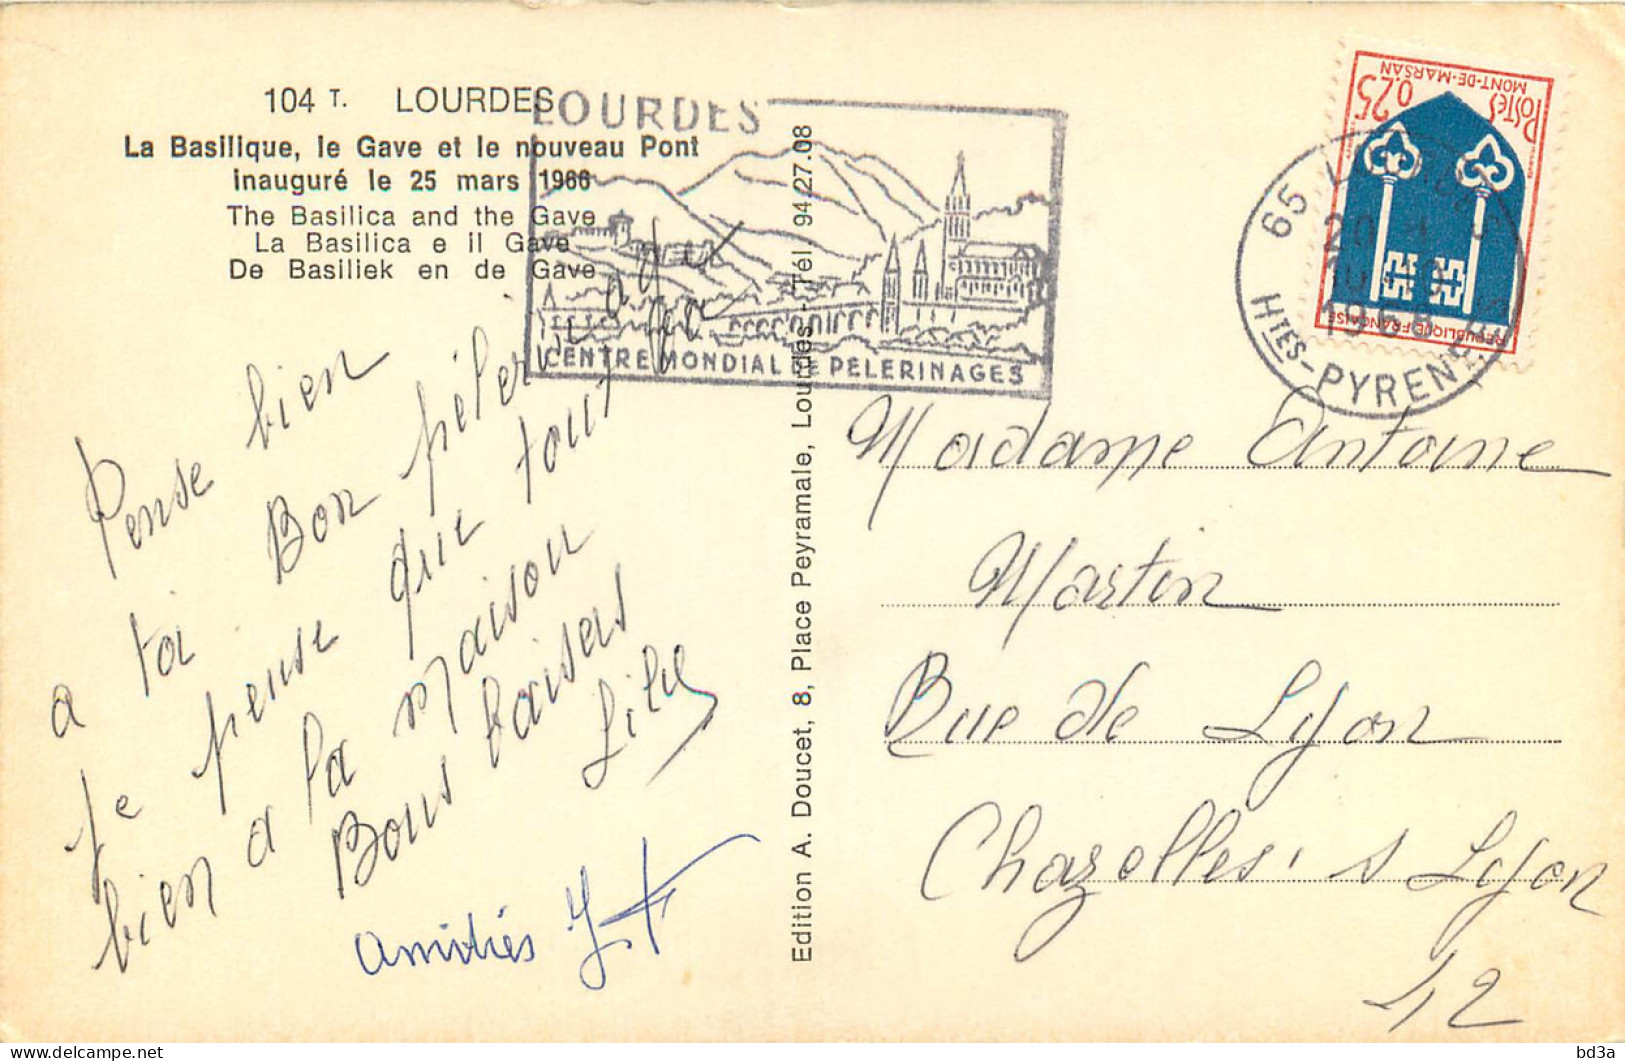 104 T. LOURDES
La Basilique, le Gave et le nouveau Pont
inauguré le 25 mars 1966
The Basilica and the Gave
La Basilica e il Gave
De Basiliek en de Gave
LOURDES
CENTRE MONDIAL DE PÈLERINAGES
65
20 H
1968
HTES-PYRENEES
POSTES
0.25
MONT-DE-MARSAN
REPUBLIQUE FRANÇAISE
Pense bien
a toi Bon
Je pense que tout
bien a la maison
Bons baisers
Amitiés
Edition A. Doucet, 8, Place Peyramale, Lourdes - Tél. 94/27.08
Madame Antoine
Martin
Rue de Lyon
Chazelles s Lyon
42
bd3a